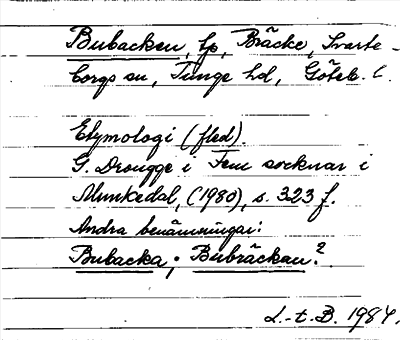 Bubacken, lp, Bräcke, Svarte-
borgs sn, Tunge hd, Göteb. l.
Etymologi (fled).
G. Drougge i Fem socknar i
Munkedal, (1980), s. 323 f.
Andra benämningar:
Bubacka; Bubräckan?
L.-t. B. 1984.